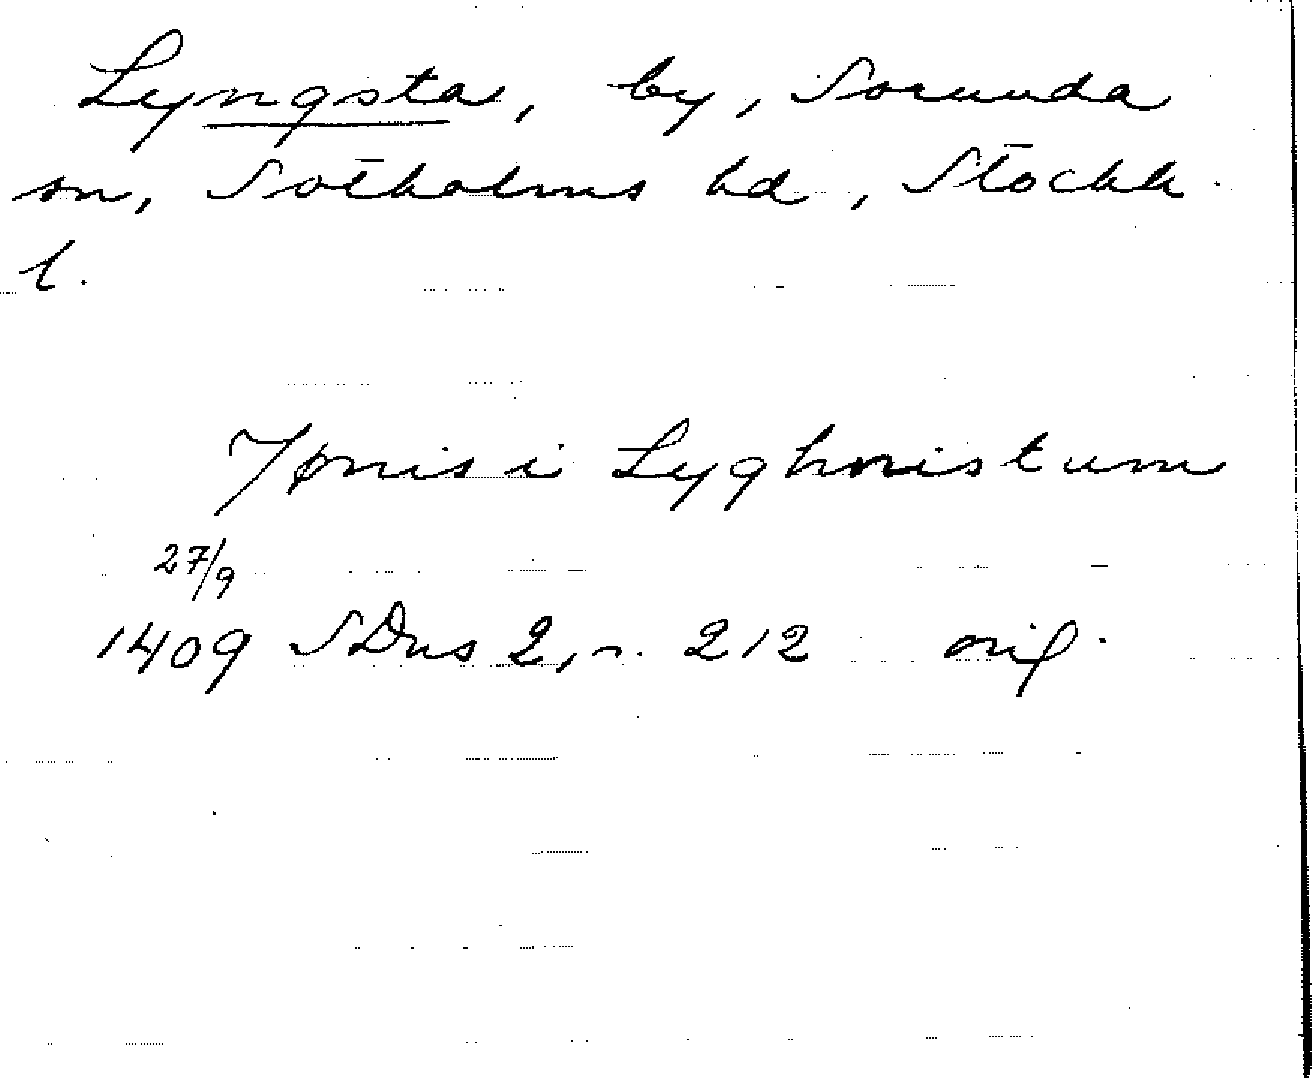 Lyngsta, by, Sorunda
sn, Sotholms hd, Stockh.
l.
Jønis i Lyghnistum
27/9
1409 SDns 2, n. 212 orig.